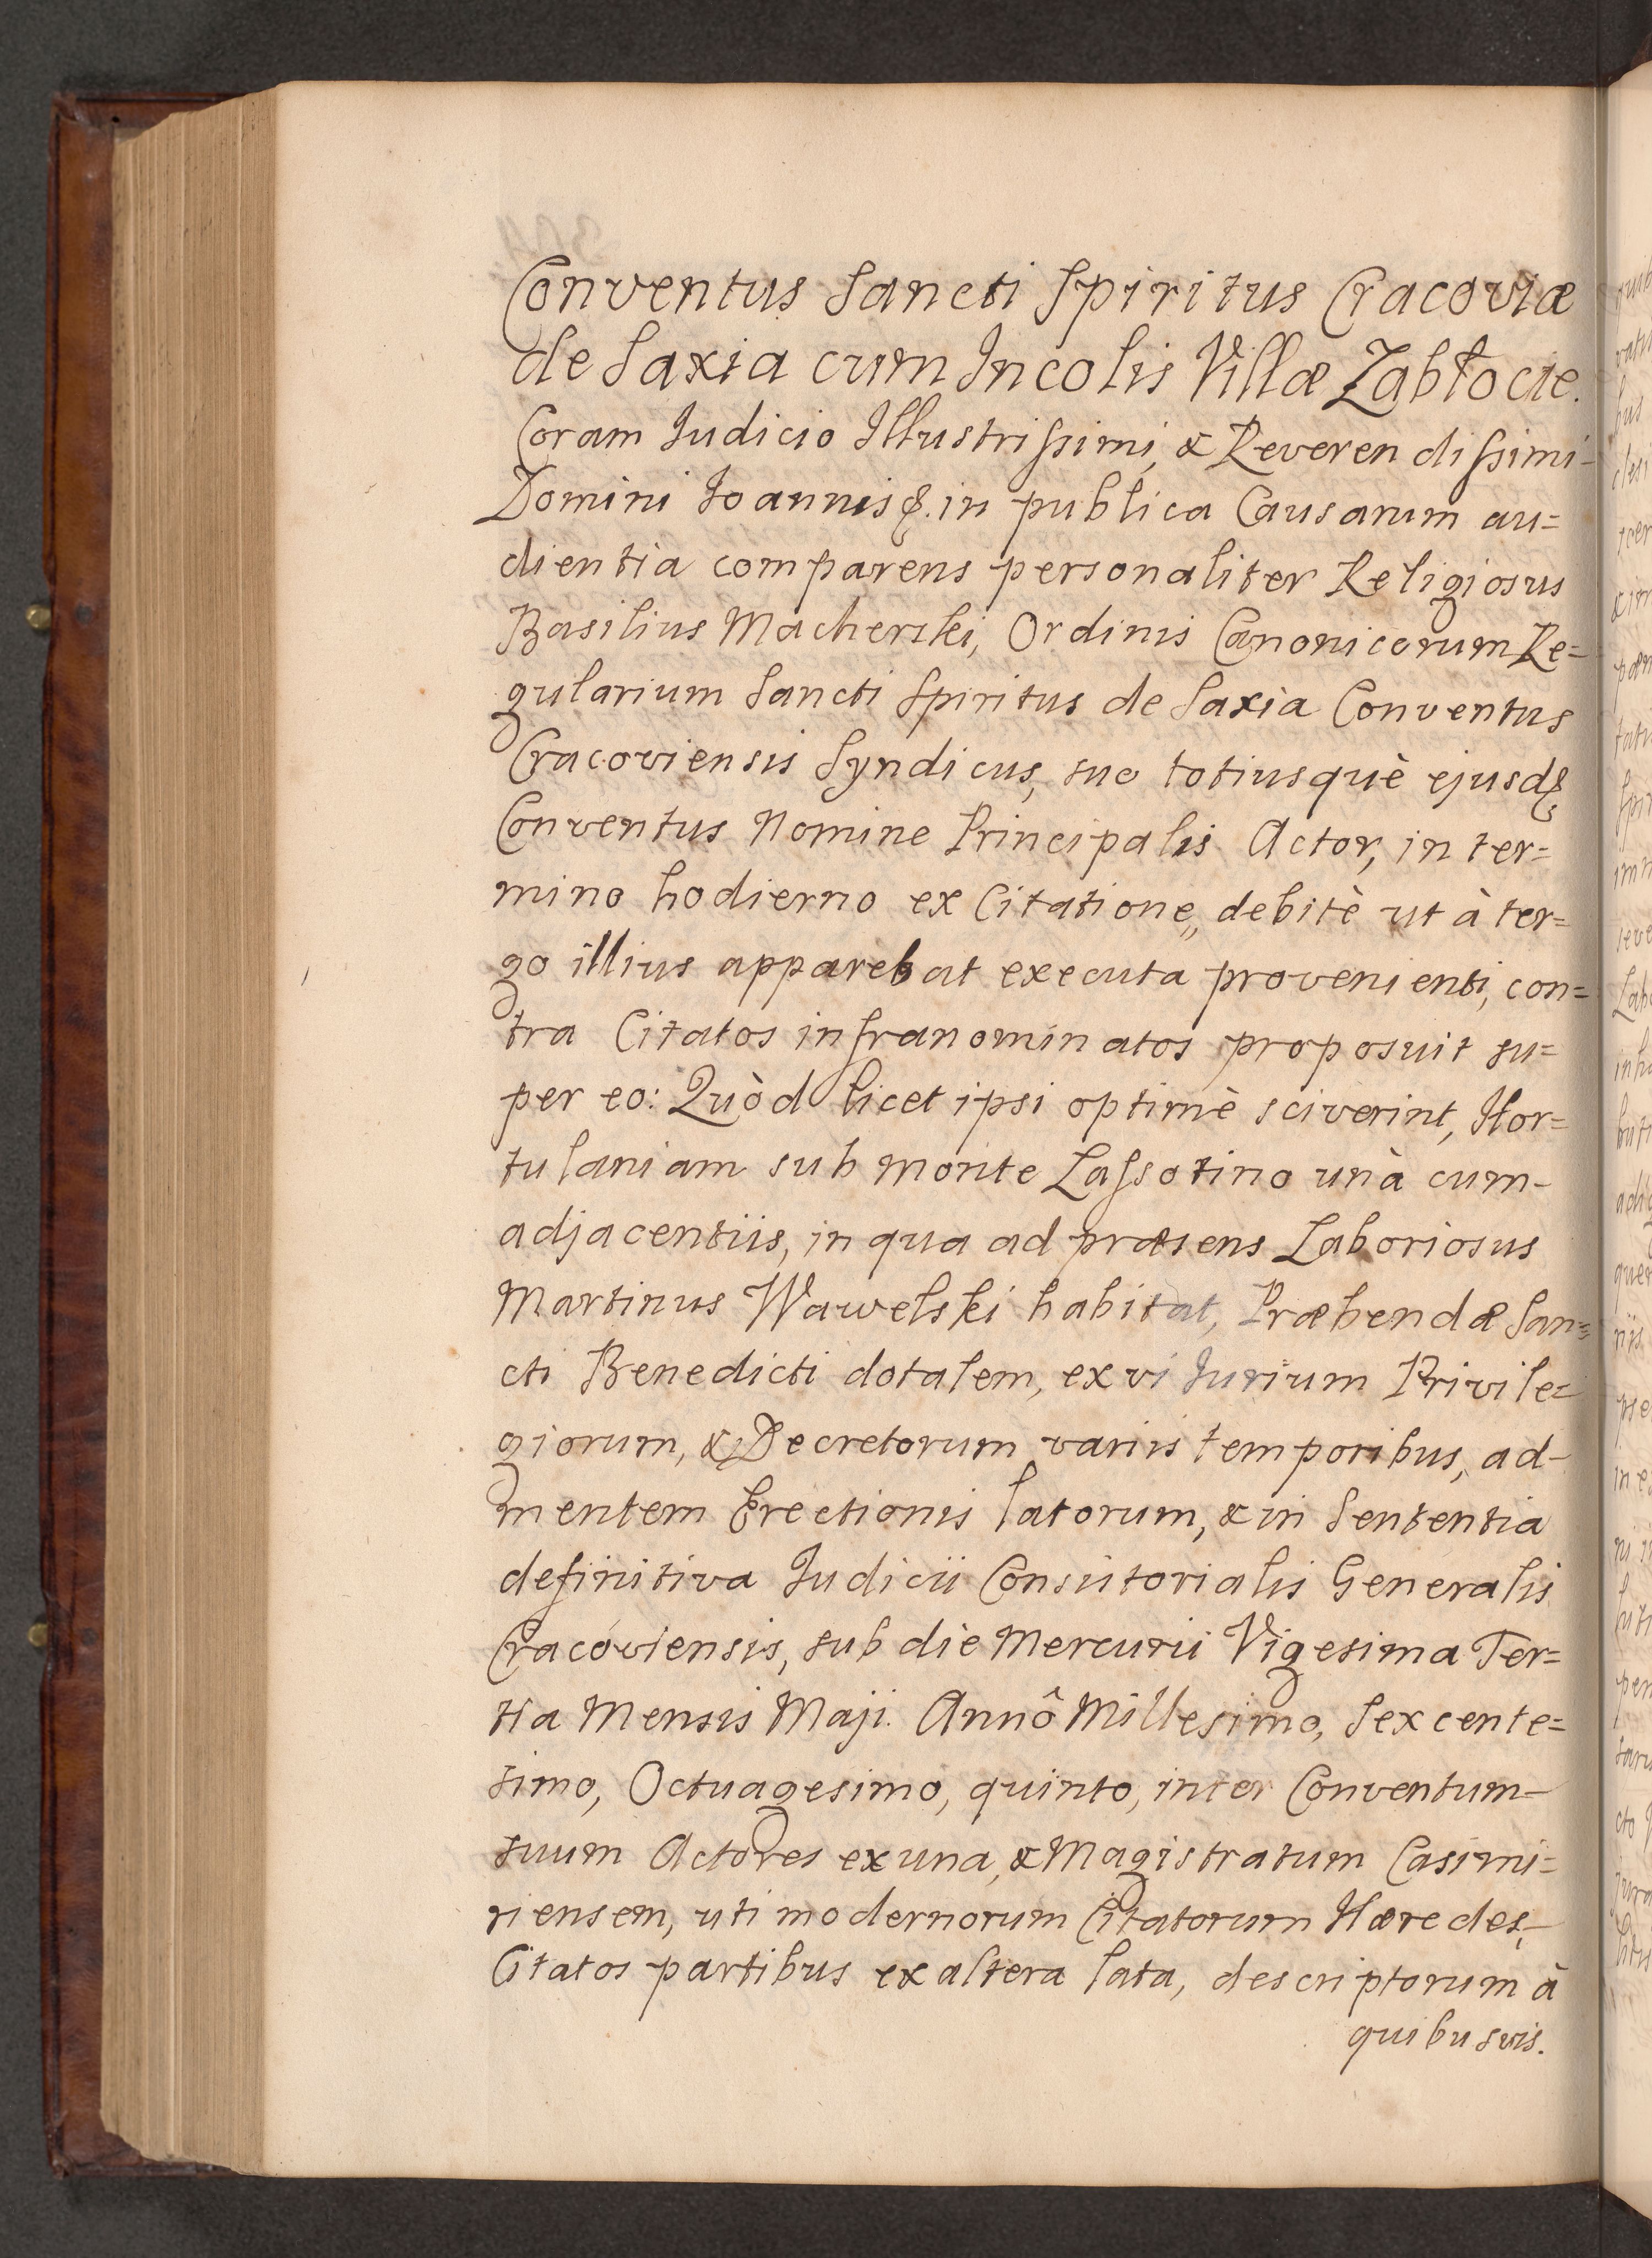 Conventus Sancti Spiritus Cracoviæ
de Saxia cum Incolis Villæ Zabłocie.
Coram Iudicio Illustrissimi, & Reverendissimi-
Domini Ioannis &. in publica Causarum au=
dientia comparens personaliter Religiosus
Basilius Macherski, Ordinis Canonicorum Re=
gularium Sancti Spiritus de Saxia Conventus
Cracoviensis Syndicus, suo totiusquè ejusd&
Conventus Nomine Principalis Actor, in ter=
mino hodierno ex Citatione, debitè ut à ter=
go illius apparebat executa provenienti, con=
tra Citatos infranominatos proposuit su=
per eo: Quòd licet ipsi optimè sciverint, Hor=
tulaniam sub Monte Lassotino unà cum-
adjacentiis, in qua ad præsens Laboriosus
Martinus Wawelski habitat, Præbendæ San=
cti Benedicti dotalem, ex vi Iurium Privile=
giorum, & Decretorum variis temporibus, ad-
mentem Erectionis latorum, & in Sententia
definitiva Iudicii Consistorialis Generalis
Cracoviensis, sub die Mercurii Vigesima Ter=
tia Mensis Maji. Annô Millesimo, Sexcente=
simo, Octuagesimo, quinto, inter Conventum-
suum Actores ex una, & Magistratum Casimi=
riensem, uti modernorum Citatorum Hæredes,-
Citatos partibus ex altera lata, descriptorum à
quibusvis.